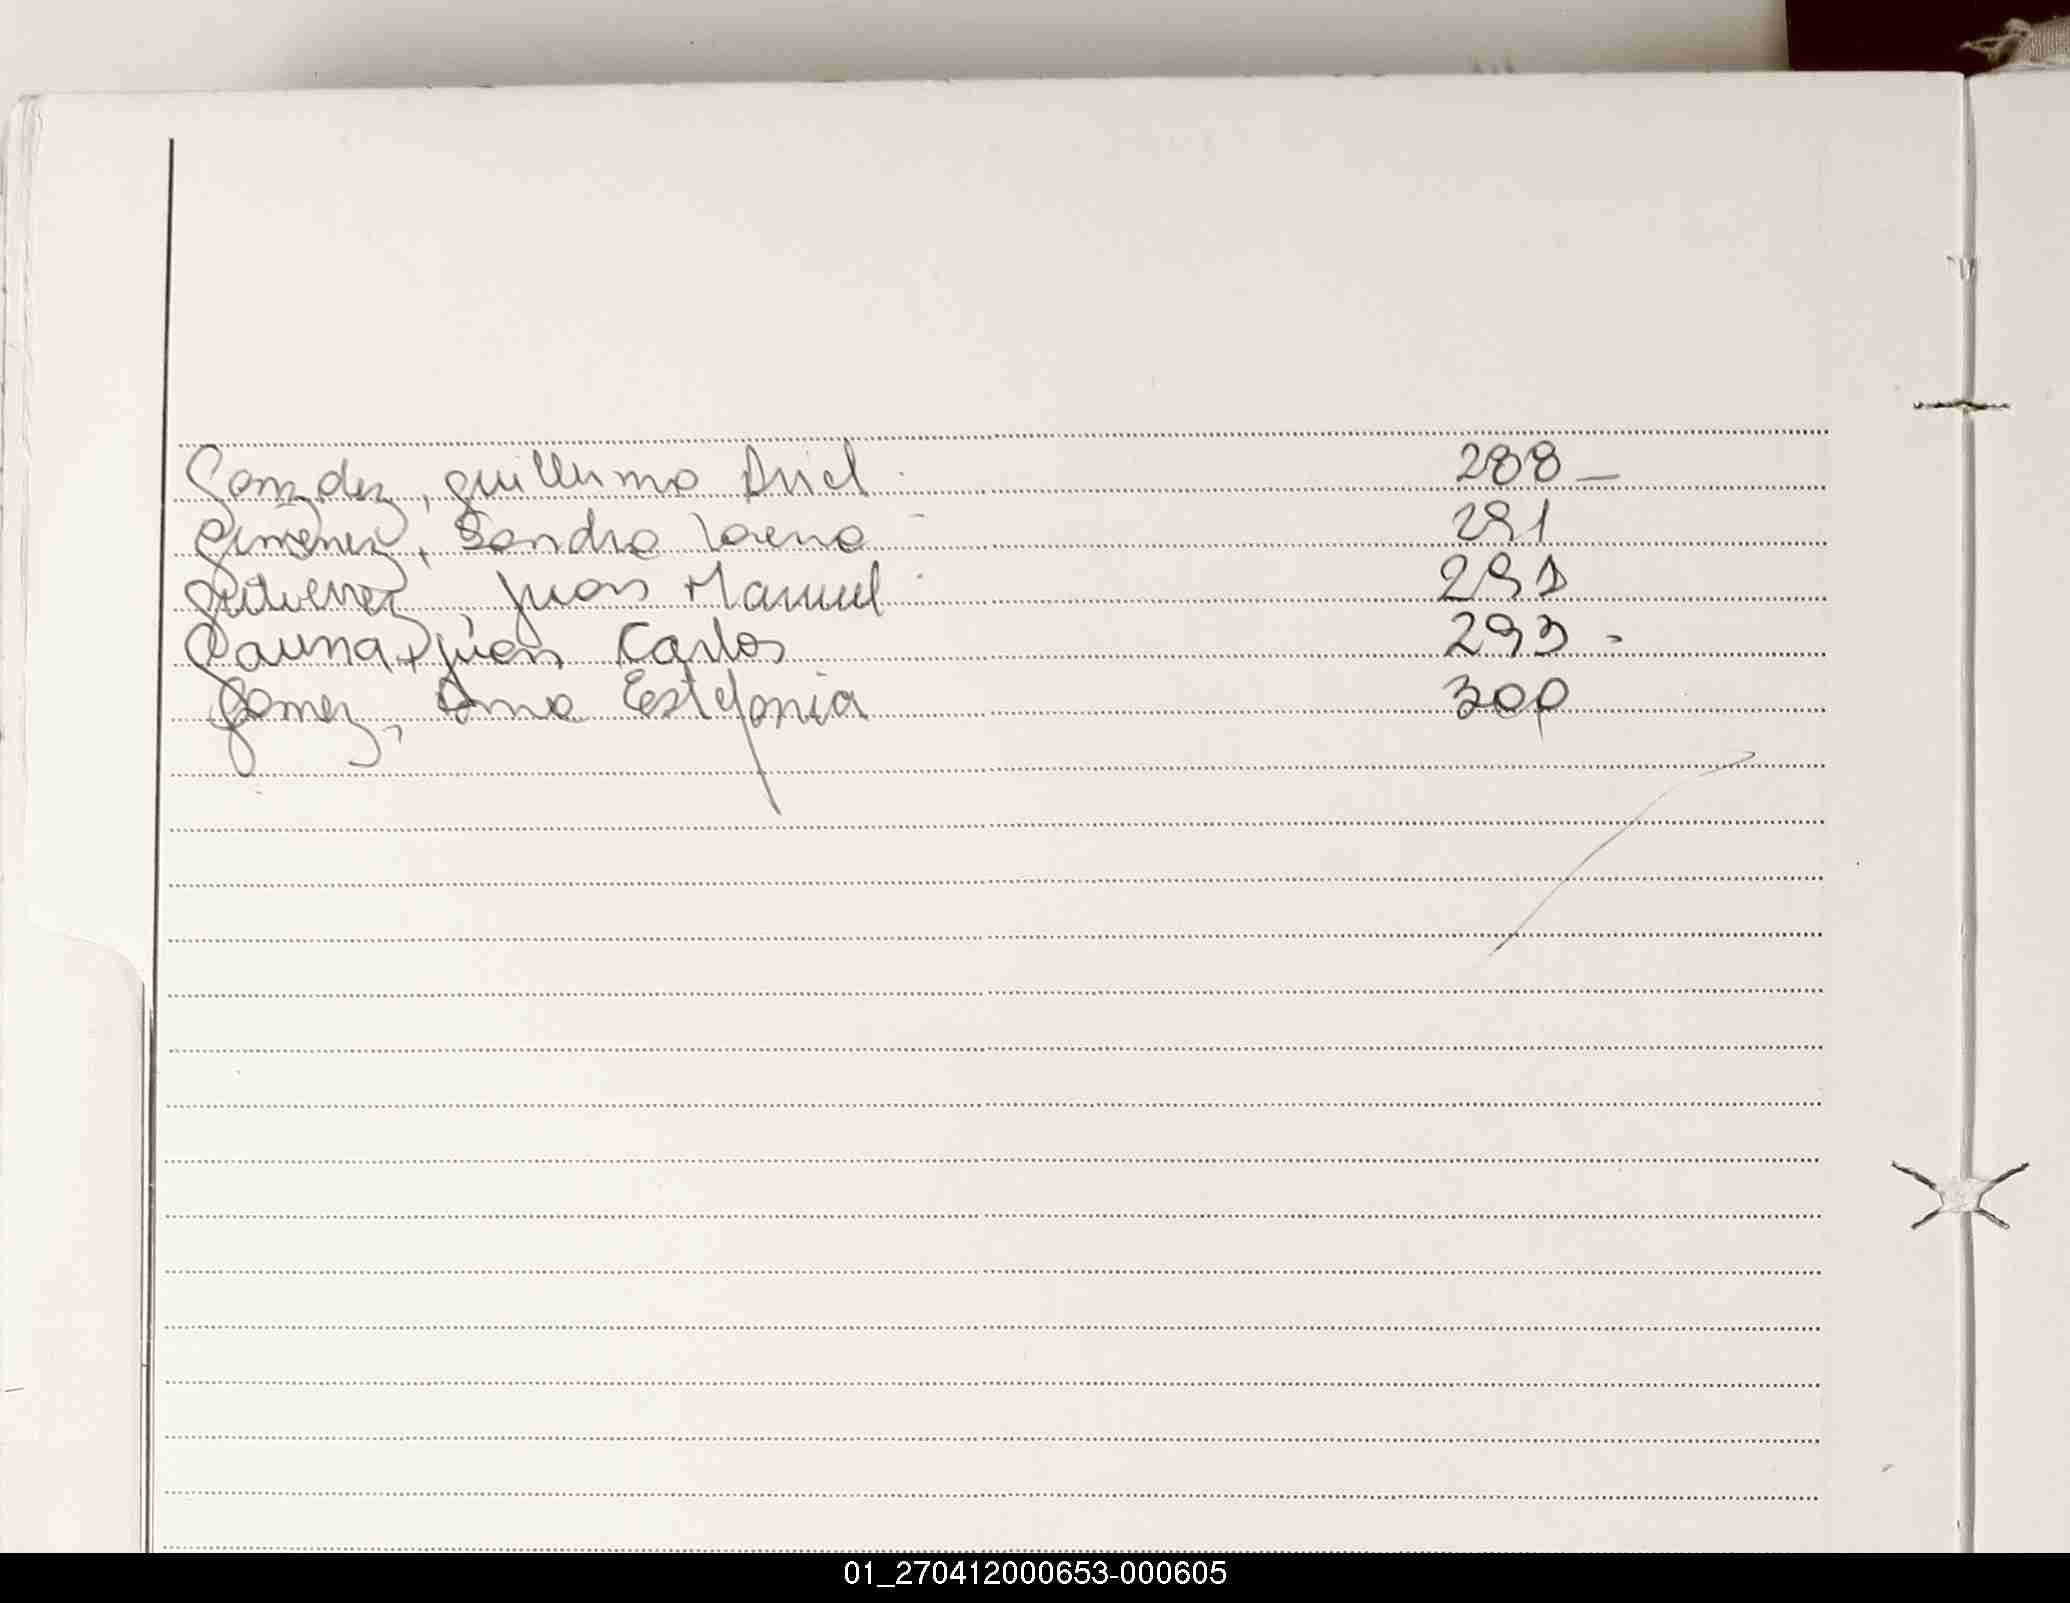 Gonzalez, Guillermo Ariel. 288 –
Gimenez, Sandra Lorena - 291
Gutierrez, Juan Manuel. 291
Gauna, Juan Carlos 293 -
Gomez, Ana Estefania 300
01_270412000653-000605